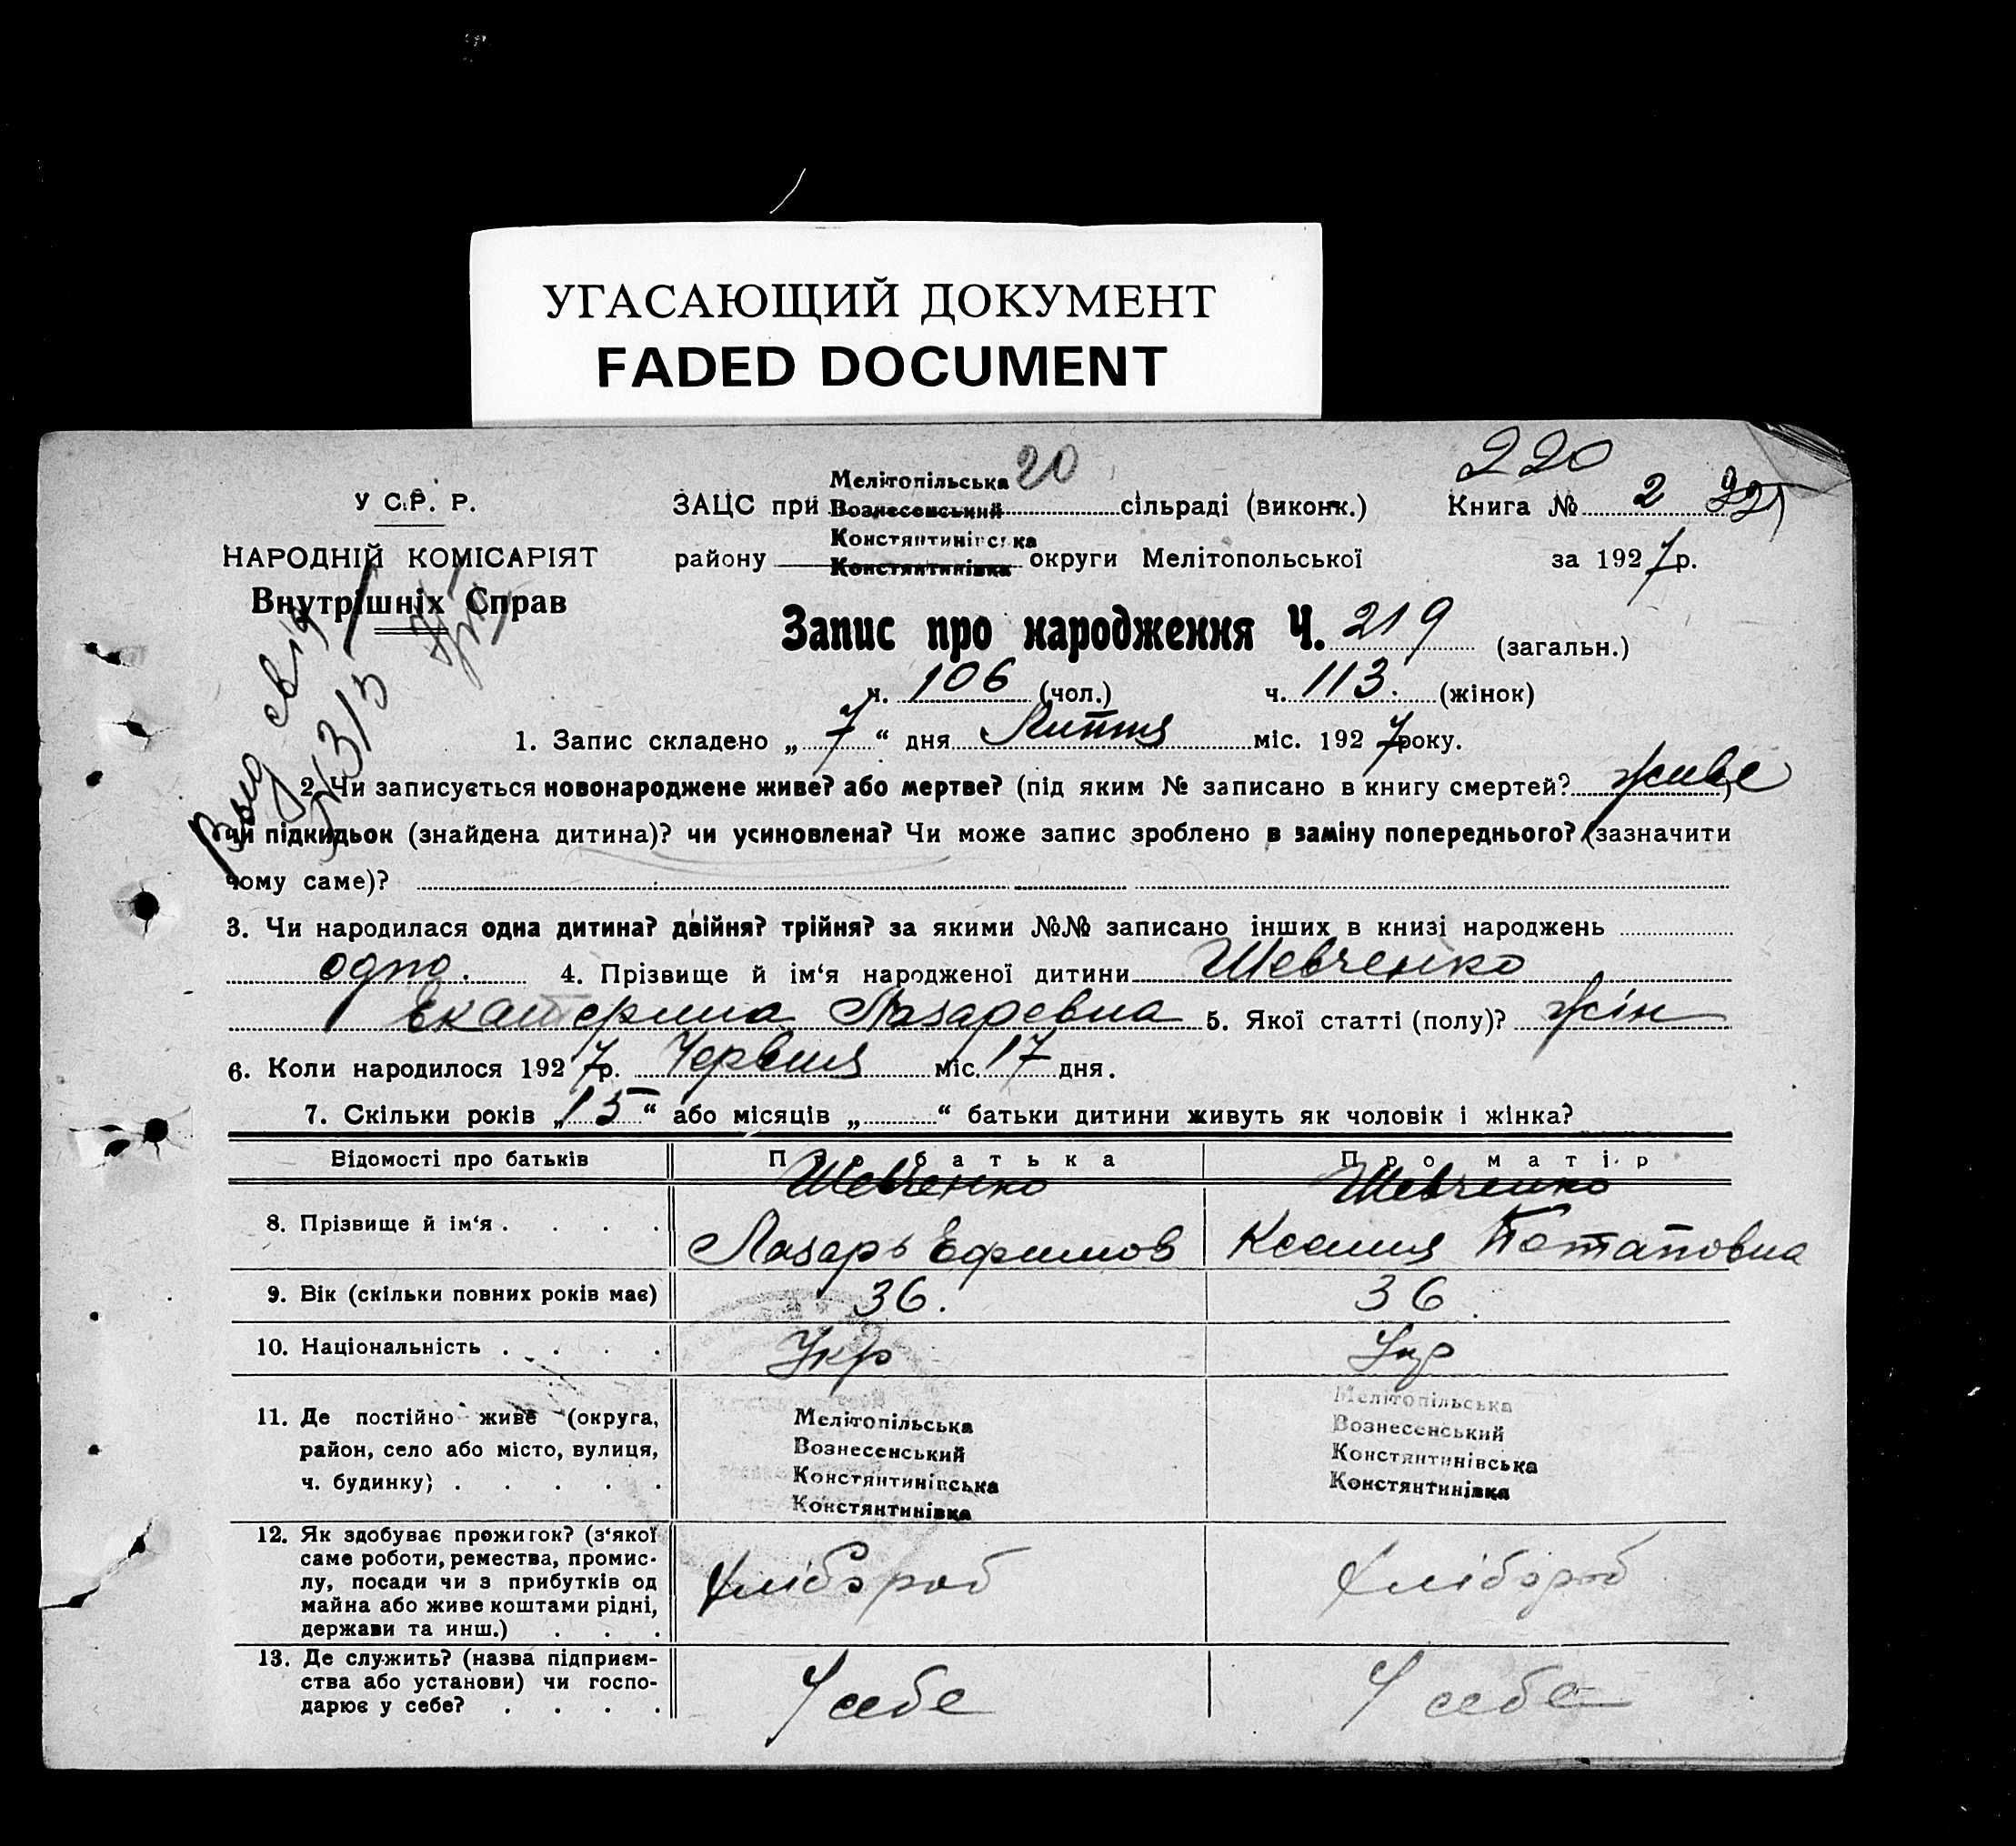 УГАСАЮЩИЙ ДОКУМЕНТ
FADED DOCUMENT
220
20
У С.Р. Р.
НАРОДНІЙ КОМІСАРІЯТ
Внутрішніх Справ
Мелітопільська
ЗАЦС при Вознесенський сільраді (виконк.) Книга № 2
Констянтинівська
району Констянтинівка округи Мелітопольської за 1927 р.
Запис про народження Ч. 219 (загальн.)
ч. 106 (чол.) ч. 113. (жінок)
1. Запис складено „7“ дня Липня міс. 1927 року.
2. Чи записується новонароджене живе? або мертве? (під яким № записано в книгу смертей? живе)
чи підкидьок (знайдена дитина)? чи усиновлена? Чи може запис зроблено в заміну попереднього? (зазначити
чому саме)?
3. Чи народилася одна дитина? двійня? трійня? за якими №№ записано інших в книзі народжень
одно. 4. Прізвище й ім‘я народженої дитини Шевченко
Екатерина Лазаревна 5. Якої статті (полу)? жін
6. Коли народилося 1927 р. Червня міс. 17 дня.
7. Скільки років „15“ або місяців „ “ батьки дитини живуть як чоловік і жінка?
Відомості про батьків Про батька Про матір
Шевченко Шевченко
8. Прізвище й ім‘я . . . .
Лазарь Ефимов Ксения Потаповна
9. Вік (скільки повних років має) 36. 36
10. Національність . . . . Укр Укр
11. Де постійно живе (округа,
район, село або місто, вулиця,
ч. будинку) . . . . .
Мелітопільська
Вознесенський
Констянтинівська
Констянтинівка
Мелітопільська
Вознесенський
Констянтинівська
Констянтинівка
12. Як здобуває прожиток? (з‘якої
саме роботи, ремества, промис-
лу, посади чи з прибутків од
майна або живе коштами рідні,
держави та инш.) . . .
хлібороб хлібороб
13. Де служить? (назва підприєм-
ства або установи) чи госпо-
дарює у себе? . . . .
У себе У себе